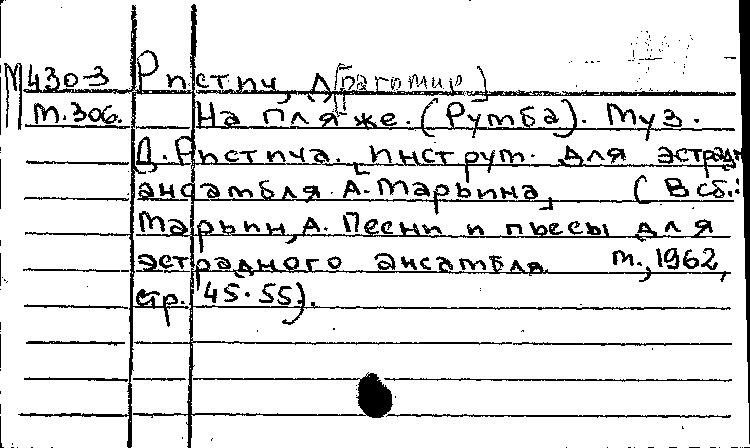 М 430-3 Ристич, Д[рагомир]
М.306. На пляже. (Румба). Муз.
Д. Ристича., инструм. для эстрадн
ансамбля А. Марьина, (В сб.:
Марьин, А. Песни и пьесы для
эстрадного ансамбля М., 1962,
стр. 45-55).